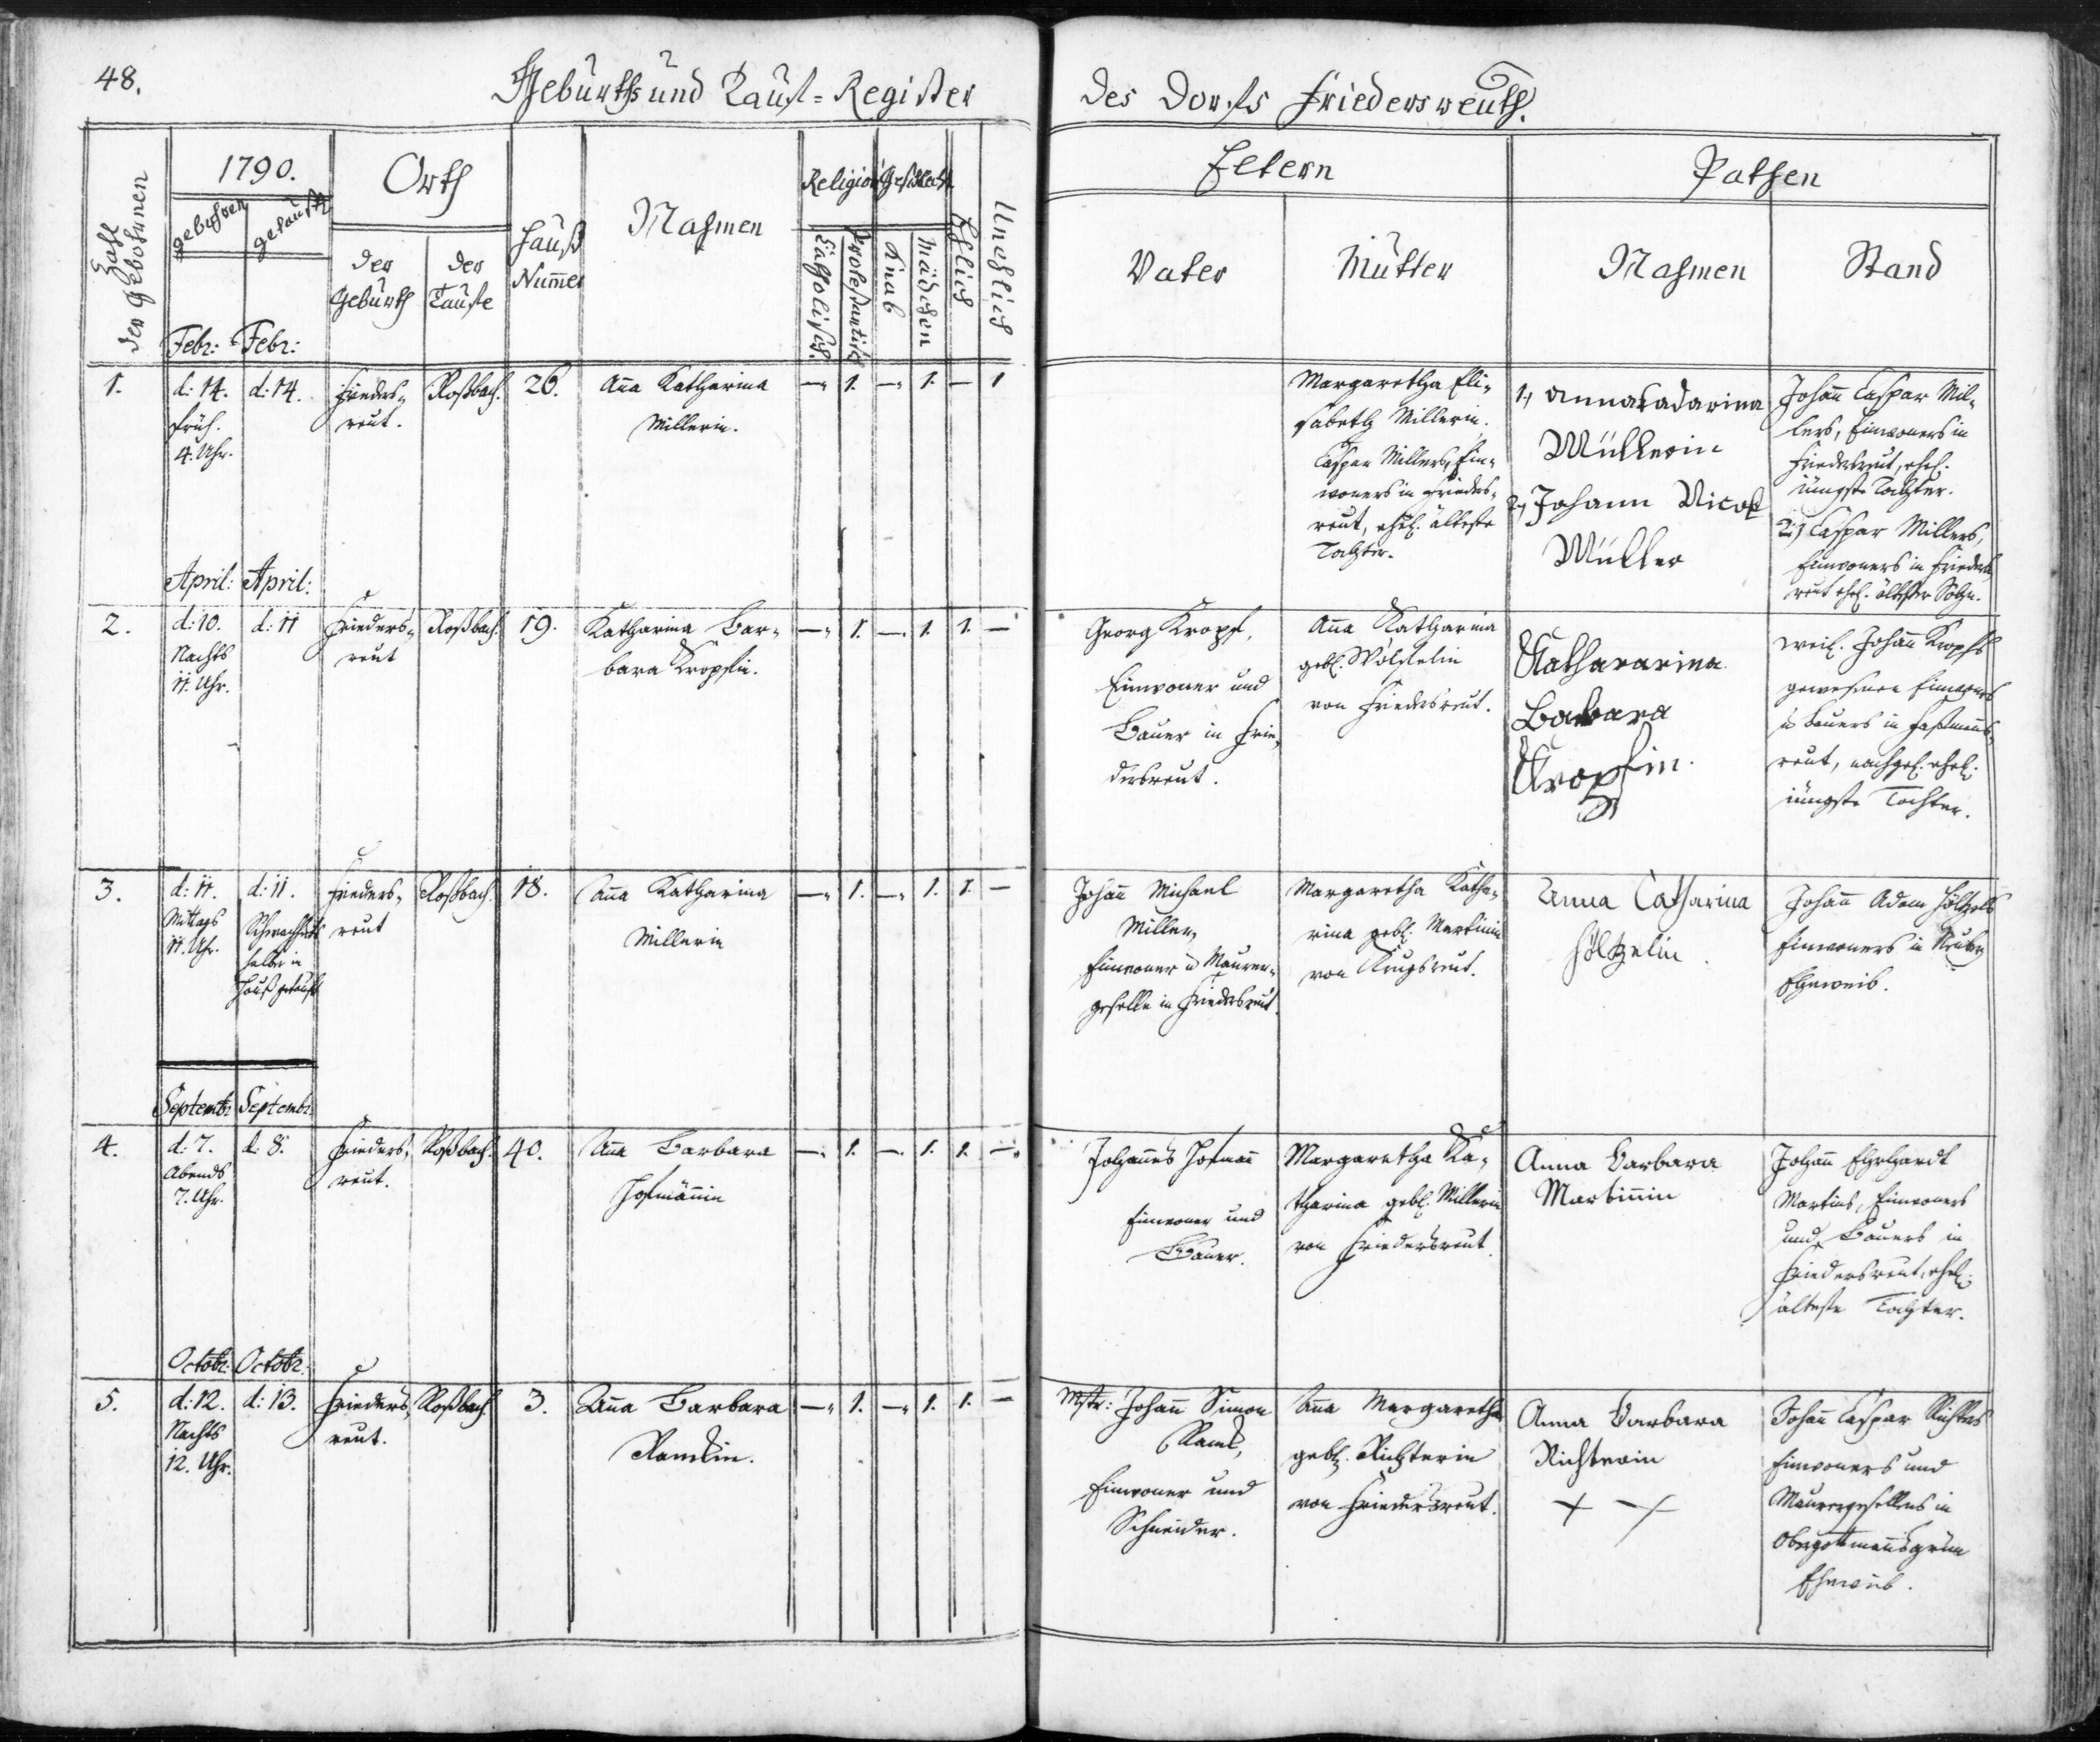 48.
Geburths und Tauf=Register
des Dorfs Friedersreuth.
Zahl der Gebohrnen
1790.
gebohren
getauft
Orth
der Geburth
der Taufe
Hauß Num̅er
Nahmen
Religion
Catholisch.
Protestantisch
Geschlecht
Knab
Mädchen
Ehlich
Unehlich
Eltern
Vater
Mutter
Pathen
Nahmen
Stand
Febr: Febr:
1.
d: 14.
früh.
4. Uhr.
d: 14.
Frieders=
reut.
Roßbach.
26.
An̅a Katharina
Millerin.
— 1. — 1. — 1
Margaretha Eli=
sabeth Millerin.
Caspar Millers, Ein=
woners in Frieders=
reut, ehel. älteste
Tochter.
1, Anna Cadarina
Müllerin
2, Johann Nicol
Müller
Johan̅ Caspar Mil=
lers, Einwoners in
Friedersreut, ehel.
jüngste Tochter.
2,) Caspar Millers,
Einwoners in Frieders
reut ehel. ältester Sohn.
April: April:
2.
d: 10.
Nachts
11. Uhr.
d: 11
Frieders=
reut
Roßbach.
19.
Katharina Bar=
bara Kropfin.
— 1. — 1. 1. —
Georg Kropf,
Einwoner und
Bauer in Frie=
dersreut.
An̅a Katharina
gebl. Wölfelin
von Friedersreut.
Kathararina
Babara
Kropfin.
weil. Johan̅ Kropfs
gewesenen Einwoners
u Bauers in Haßman̅s=
reut, nachgel. ehel.
jüngste Tochter.
3.
d: 11.
Mittags
11. Uhr.
d: 11.
Schwachheits
halber in
Hauß getauft
Frieders=
reut
Roßbach.
18.
An̅a Katharina
Millerin
— 1. — 1. 1. —
Johan̅ Michael
Miller,
Einwoner u Maurer=
geselle in Friedersreut.
Margaretha Katha=
rina gebl. Martinin
von Krugsreut.
Anna Catharina
Höltzelin.
Johan̅ Adam Höltzels
Einwoners in
Eheweib.
Septembr: Septembr:
4.
d: 7.
Abends
7. Uhr.
d: 8.
Frieders=
reut.
Roßbach.
40.
An̅a Barbara
Hofmän̅in
— 1. — 1. 1. —
Johannes Hofman̅
Einwoner und
Bauer.
Margaretha Ka=
tharina gebl. Millerin
von Friedersreut.
Anna Barbara
Martinnin
Johan̅ Ehrhardt
Martins, Einwoners
und Bauers in
Friedersreut, ehel.
älteste Tochter.
Octobr: Octobr:
5.
d: 12.
Nachts
12. Uhr.
d: 13.
Frieders=
reut.
Roßbach.
3.
An̅a Barbara
— 1. — 1. 1. —
Mstr: Johan̅ Simon
Einwoner und
Schneider.
An̅a Margaretha
gebl. Richterin
von Friedersreut.
Anna Barbara
Richterin
+ +
Johan̅ Caspar Richters
Einwoners und
Maurergesellens in
Obergettman̅sgrün
Eheweib.